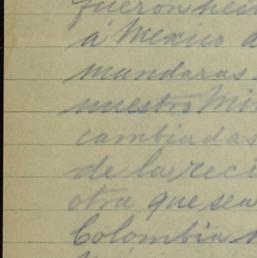 fueron hei
á Mexico a
mandaras
nuestro Mi
cambiadas
de la reci
otra que sea
Colombia